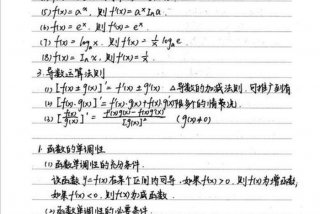 (5) f(x)=aˣ, 则 f'(x)=aˣ ln a
(6) f(x)=eˣ, 则 f'(x)=eˣ
(7) f(x)=logₐx, 则 f'(x)=1/x logₐe
(8) f(x)=ln x, 则 f'(x)=1/x
3. 导数运算法则
(1) [f(x)±g(x)]'=f'(x)±g'(x) △导数的加减法则, 可推广到有
(2) [f(x)·g(x)]'=f'(x)·g(x)+f(x)g'(x) 限多个的情况.
(3) [f(x)/g(x)]'=f'(x)g(x)-f(x)g'(x)/[g(x)]² (g(x)≠0)
1. 函数的单调性
(1) 函数单调性的充分条件.
设函数 y=f(x)在某个区间内可导, 如果 f'(x)>0, 则 f(x)为增函数,
如果 f'(x)<0, 则 f(x)为减函数.
(2) 函数单调性的必要条件.